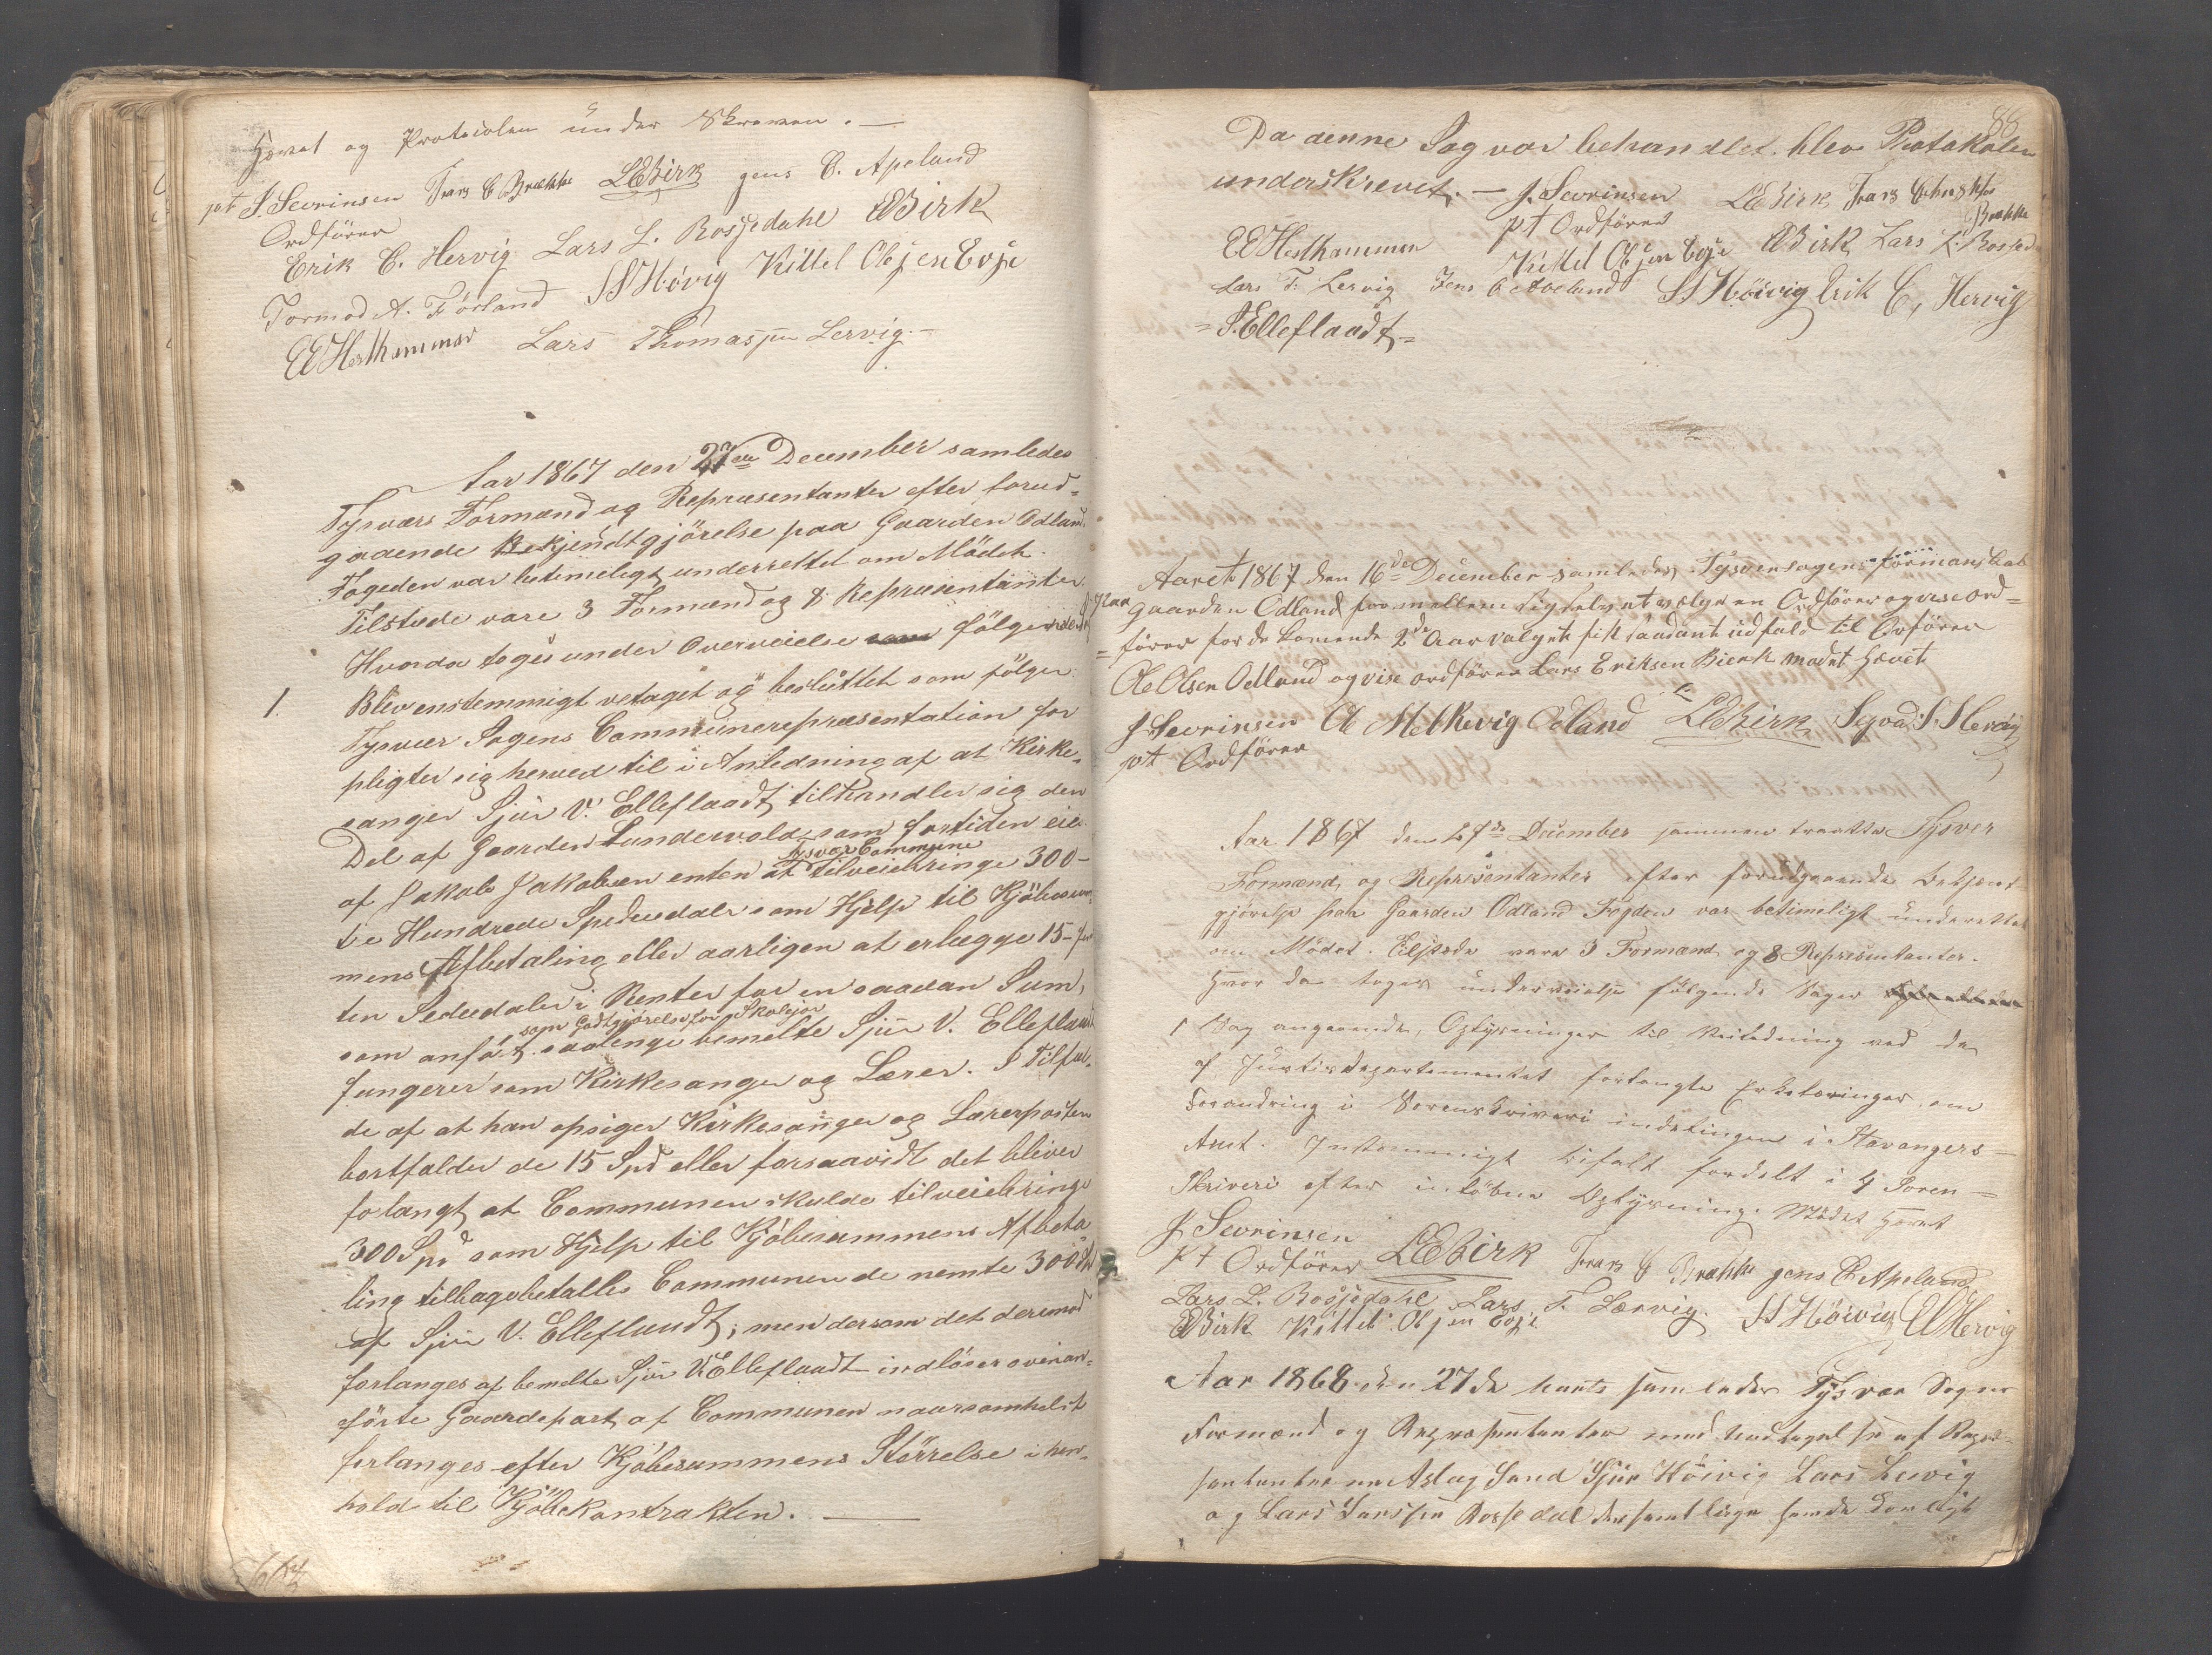 Hævet og Protocolen under Skreven. —
pt S. Sevrinsen Frans C Brække LEBirk jens C. Apeland
Ordförer
Erik C. Hervig Lars L. Rossjedahl EBirk
Tormod A.Förland SSHövig Kittel Olsen Evje
EEHesthammar Lars Thomassen Lervig. —
Aar 1867 den 27de December samledes
Tysværs Formænd og Repræsentanter efter forud-
gaaende Bekjendtgjörelse paa Gaarden Odland.
Fogeden var betimeligt underrettet om Mödet.
Tilstede vare 3 Formænd og 8 Repræsentanter.
Hvorda toges under Overveielse fölgende
1. Blev enstemmigt vetaget og besluttet som fölger:
Tysvær Sogens Communerepræsentation for
pligter sig herved til i Anledning af at Kirke-
sanger Sjur V. Elleflaadt tilhandler sig den
Del af Gaarden Sundervold som fortiden eies
af Jakob Jakobsen enten at Tysvær Commune tilveiebringe 300-
tre Hundrede Speciedaler som Hjelp til Kjöbesum-
mens Afbetaling eller aarligen at erlægge 15- fem
ten Speciedaler i Renter for en saadan Sum,
som anfört som Godtgjörelse for Skolejor saalenge bemelte Sjur V. Elleflaadt
fungerer som Kirkesanger og Lærer. I Tilfæl-
de af at han opsiger Kirkesanger og Lærerposten
bortfalder de 15 Spd eller forsaavidt det bliver
forlangt at Communen skulde tilveiebringe
300 Spd som Hjelp til Kjöbesummens Afbeta
ling tilbagebetalles Communen de nemte 300 Spd
af Sjur V. Elleflaadt; men dersom det derimod
forlanges af bemelte Sjur V Elleflaadt indlöser ovenan-
förte Gaardepart af Communen naarsomhelst
forlanges efter Kjöbesummens Störrelse i hen-
hold til Kjöbekontrakten. —
88
Da denne Sag var behandlet. blev Protokolen
underskrevet. — J. Sevrinsen LEBirk Frans Christofer
EEHesthammer pt Ordförer Brække
Kittel Olsen Evje EBirk Lars L. Rossed
Lars T. Lervig Jens C Apeland SSHöivig Erik C, Hervig
= S. Elleflaadt =
Aaret 1867 den 16de December samledes Tysversogens formanskab
paa gaarden Odland for mellem sig selv at vælge en Ordförer og vise ord=
=förer for de komende 2de Aar valget fik saadant udfald til Orförer
Ole Olsen Odland og vise ordförer Lars Eriksen Bierk mödet hævet
J Sevrinsen Ole Melkevig Odland LEBirk Sigvad S. Hervig
pt Ordförer
Aar 1867 den 27de December sammen traatte Tysver
Formænd og Represèntanter efter forudgaaende bekjent
gjörelse paa Gaarden Odland Fogden var betimeligt underettet
om Mödet. Tilstede vare 3 Formænd og 8 Represèntanter.
Hvor da toges under veielse fölgende Sager
1 Sag angaaende Oplysninger til veiledning ved de
af Justisdepartementet forlangte Erklæringer om
Forandring i Sorenskriveri indelingen i Stavangers—
Amt. Instemmigt bifalt fordelt i 4 Soren=
Skriveri efter inlöbne Oplysning. Mödet Hævet
J Sevrinsen
pt Ordförer LEBirk Frans C Brække jens C Apeland
Lars L. Rossjedahl Lars T. Lærvig. SSHöivig EEHervig
EBirk Kittel Olsen Evje
Aar 1868 den 27de Marts samledes Tysvær Sogns
Formænd og Repræsentanter med undtagelse af Repræ-
sentanterne Aslag Sund Sjur Höivig Lars Lervig
og Lars Larssen Rossedal der samtlige havde Lovligt